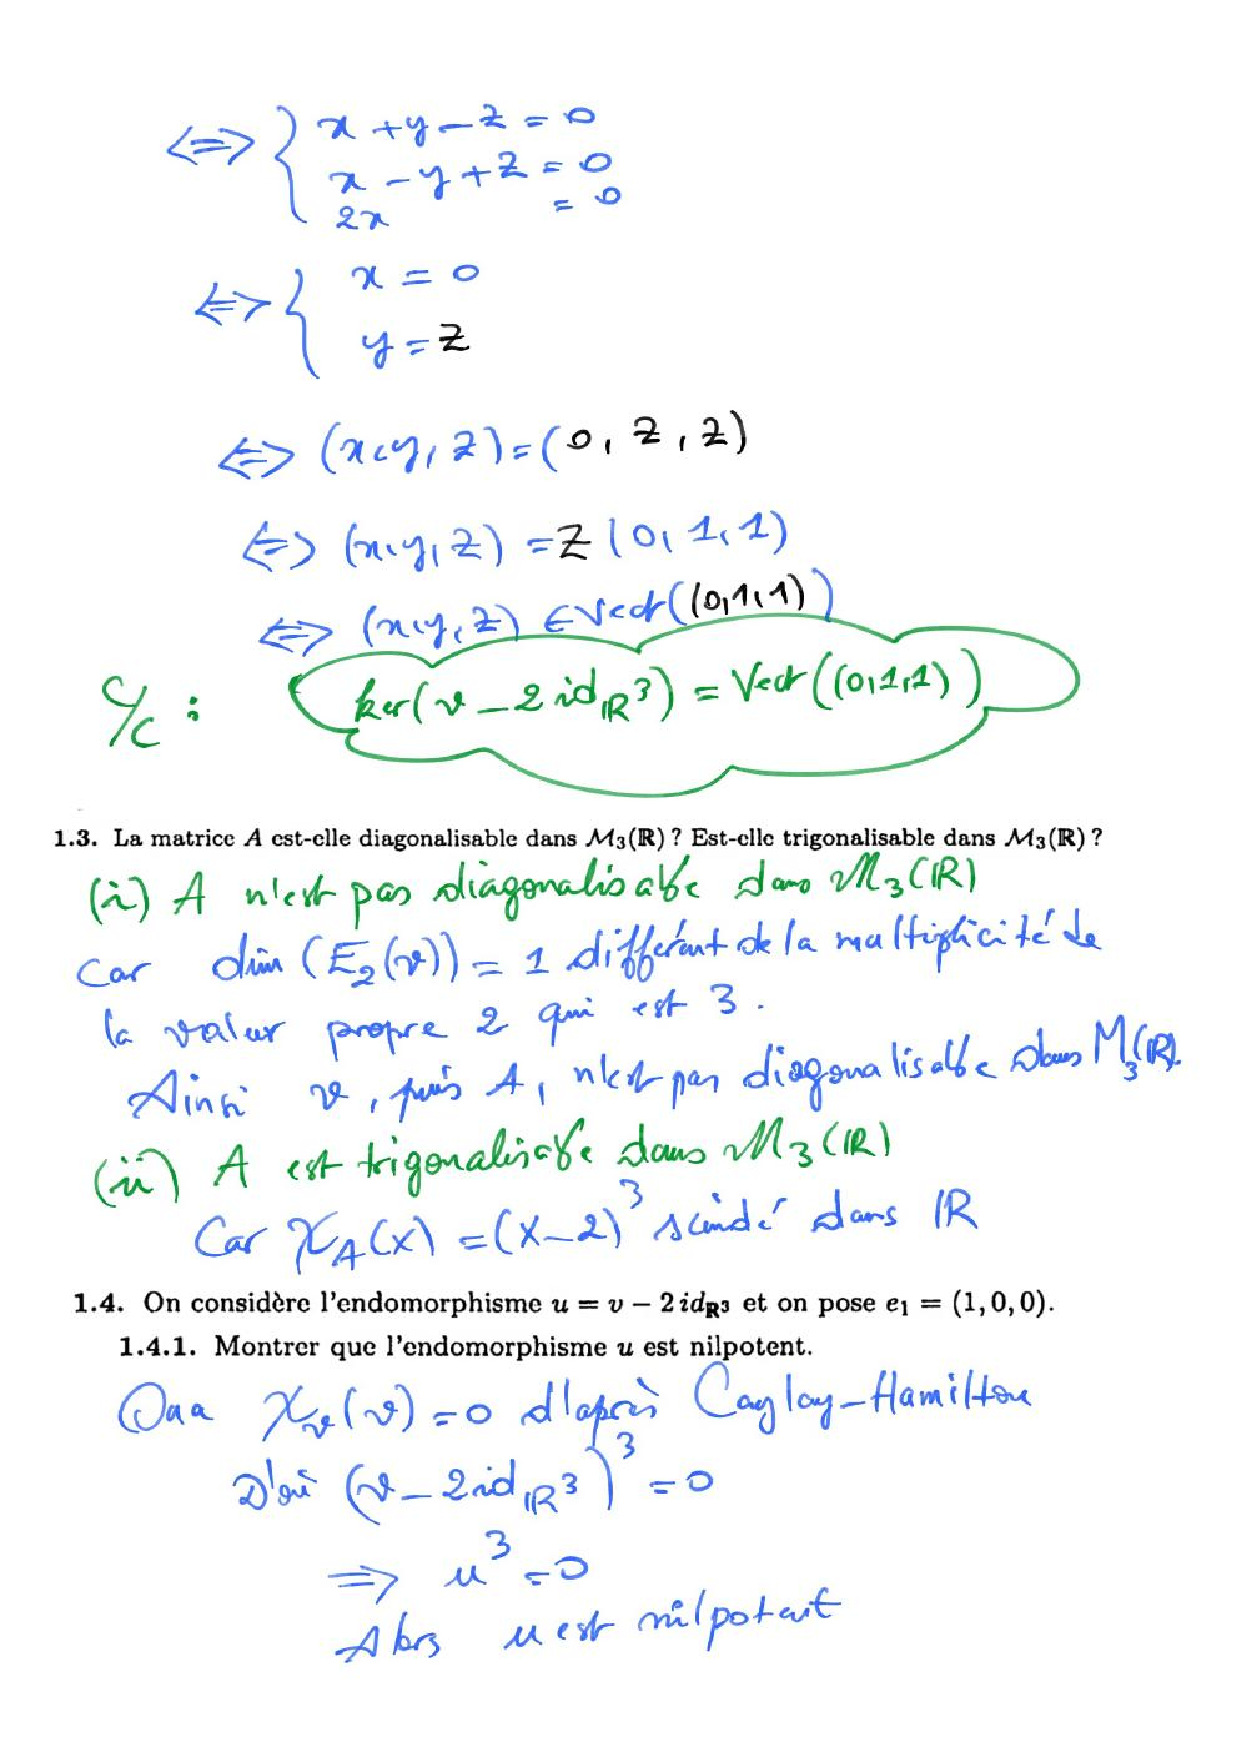 ⇔ { x + y − z = 0
x − y + z = 0
2x = 0
⇔ { x = 0
y = z
⇔ (x, y, z) = (0, z, z)
⇔ (x, y, z) = z (0, 1, 1)
⇔ (x, y, z) ∈ Vect((0,1,1))
C/C : ker(v − 2 id_ℝ³) = Vect((0,1,1))
1.3. La matrice A est-elle diagonalisable dans ℳ₃(ℝ) ? Est-elle trigonalisable dans ℳ₃(ℝ) ?
(i) A n'est pas diagonalisable dans ℳ₃(ℝ)
Car dim (E₂(v)) = 1 différent de la multiplicité de
la valeur propre 2 qui est 3.
Ainsi v, puis A, n'est pas diagonalisable dans M₃(ℝ).
(ii) A est trigonalisable dans ℳ₃(ℝ)
Car χ_A(X) = (X − 2)³ scindé dans ℝ
1.4. On considère l'endomorphisme u = v − 2 id_ℝ³ et on pose e₁ = (1, 0, 0).
1.4.1. Montrer que l'endomorphisme u est nilpotent.
On a χ_v(v) = 0 d'après Cayley-Hamilton
D'où (v − 2 id_ℝ³)³ = 0
⇒ u³ = 0
Alors u est nilpotent